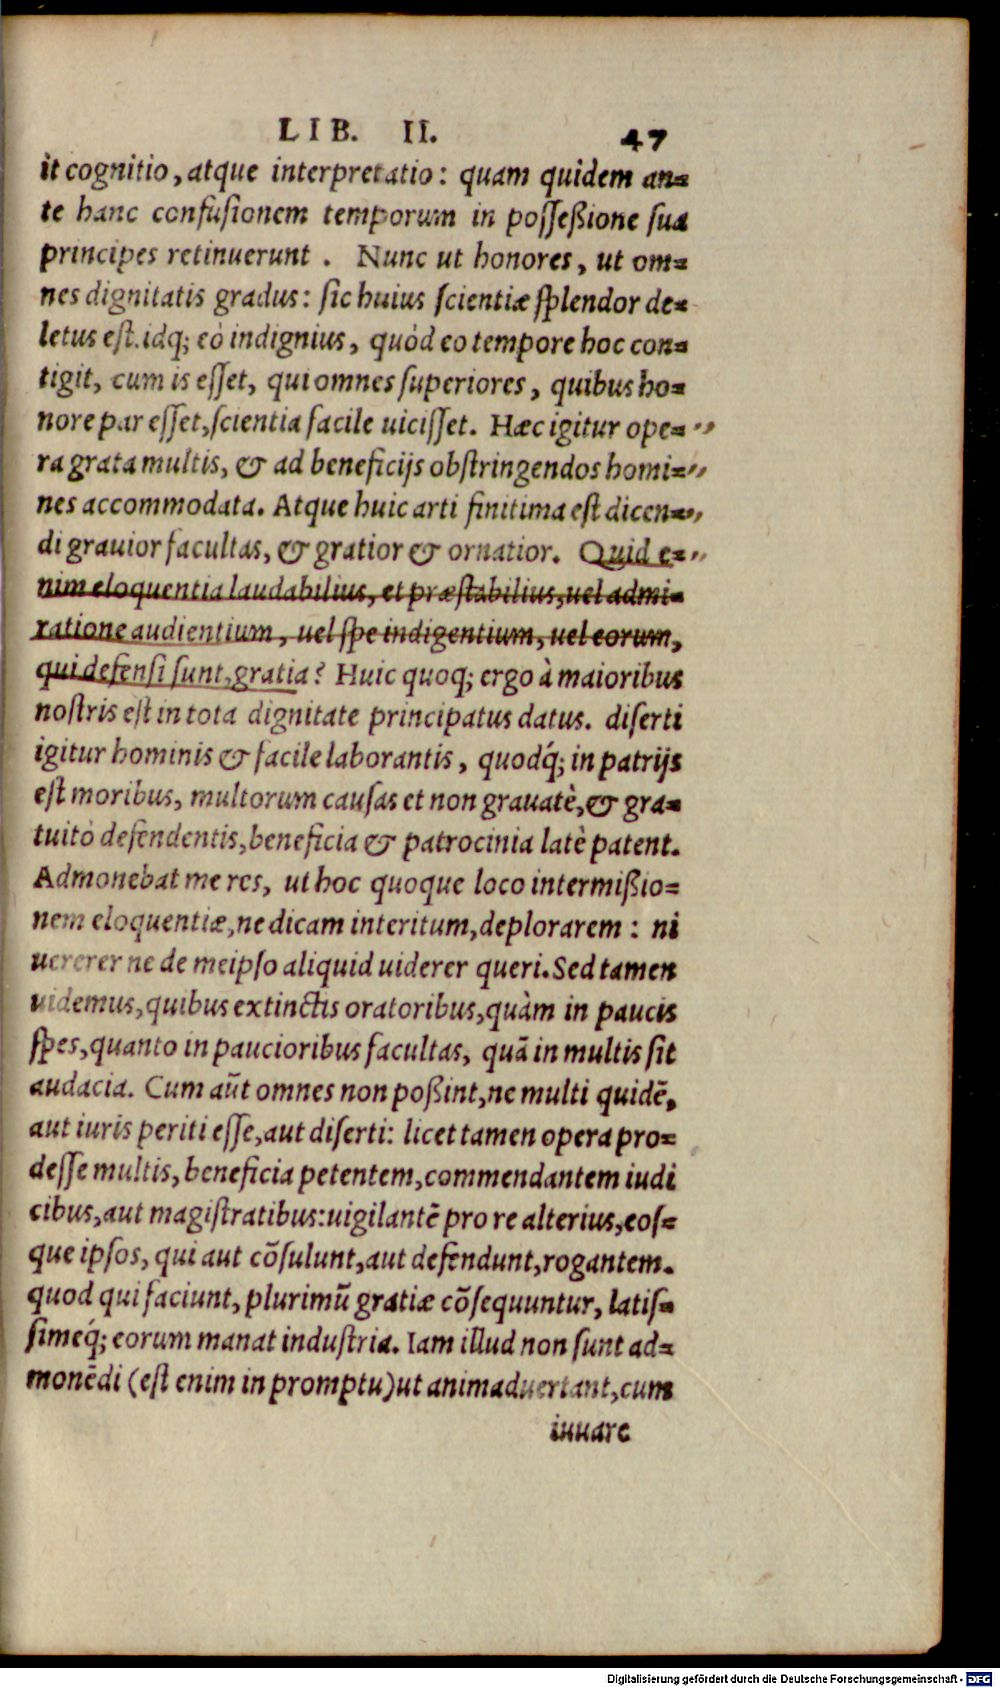 LIB. II. 47
it cognitio, atque interpretatio: quam quidem an=
te hanc confusionem temporum in posseßione sua
principes retinuerunt. Nunc ut honores, ut om=
nes dignitatis gradus: sic huius scientiæ splendor de=
letus est. idq; eò indignius, quòd eo tempore hoc con=
tigit, cum is esset, qui omnes superiores, quibus ho=
nore par esset, scientia facile uicisset. Hæc igitur ope=
ra grata multis, & ad beneficijs obstringendos homi=
nes accommodata. Atque huic arti finitima est dicen=
di grauior facultas, & gratior & ornatior. Quid e=
nim eloquentia laudabilius, et præstabilius, uel admi=
ratione audientium, uel spe indigentium, uel eorum,
qui defensi sunt, gratia? Huic quoq; ergo à maioribus
nostris est in tota dignitate principatus datus. diserti
igitur hominis & facile laborantis, quodq́; in patrijs
est moribus, multorum causas et non grauatè, & gra=
tuitò defendentis, beneficia & patrocinia latè patent.
Admonebat me res, ut hoc quoque loco intermißio=
nem eloquentiæ, ne dicam interitum, deplorarem: ni
uererer ne de meipso aliquid uiderer queri. Sed tamen
uidemus, quibus extinctis oratoribus, quàm in paucis
spes, quanto in paucioribus facultas, quā in multis sit
audacia. Cum aūt omnes non poßint, ne multi quidē,
aut iuris periti esse, aut diserti: licet tamen opera pro=
desse multis, beneficia petentem, commendantem iudi
cibus, aut magistratibus: uigilantē pro re alterius, eos=
que ipsos, qui aut cōsulunt, aut defendunt, rogantem.
quod qui faciunt, plurimū gratiæ cōsequuntur, latis=
simeq́; eorum manat industria. Iam illud non sunt ad=
monēdi (est enim in promptu) ut animaduertant, cum
iuuare
Digitalisierung gefördert durch die Deutsche Forschungsgemeinschaft - DFG